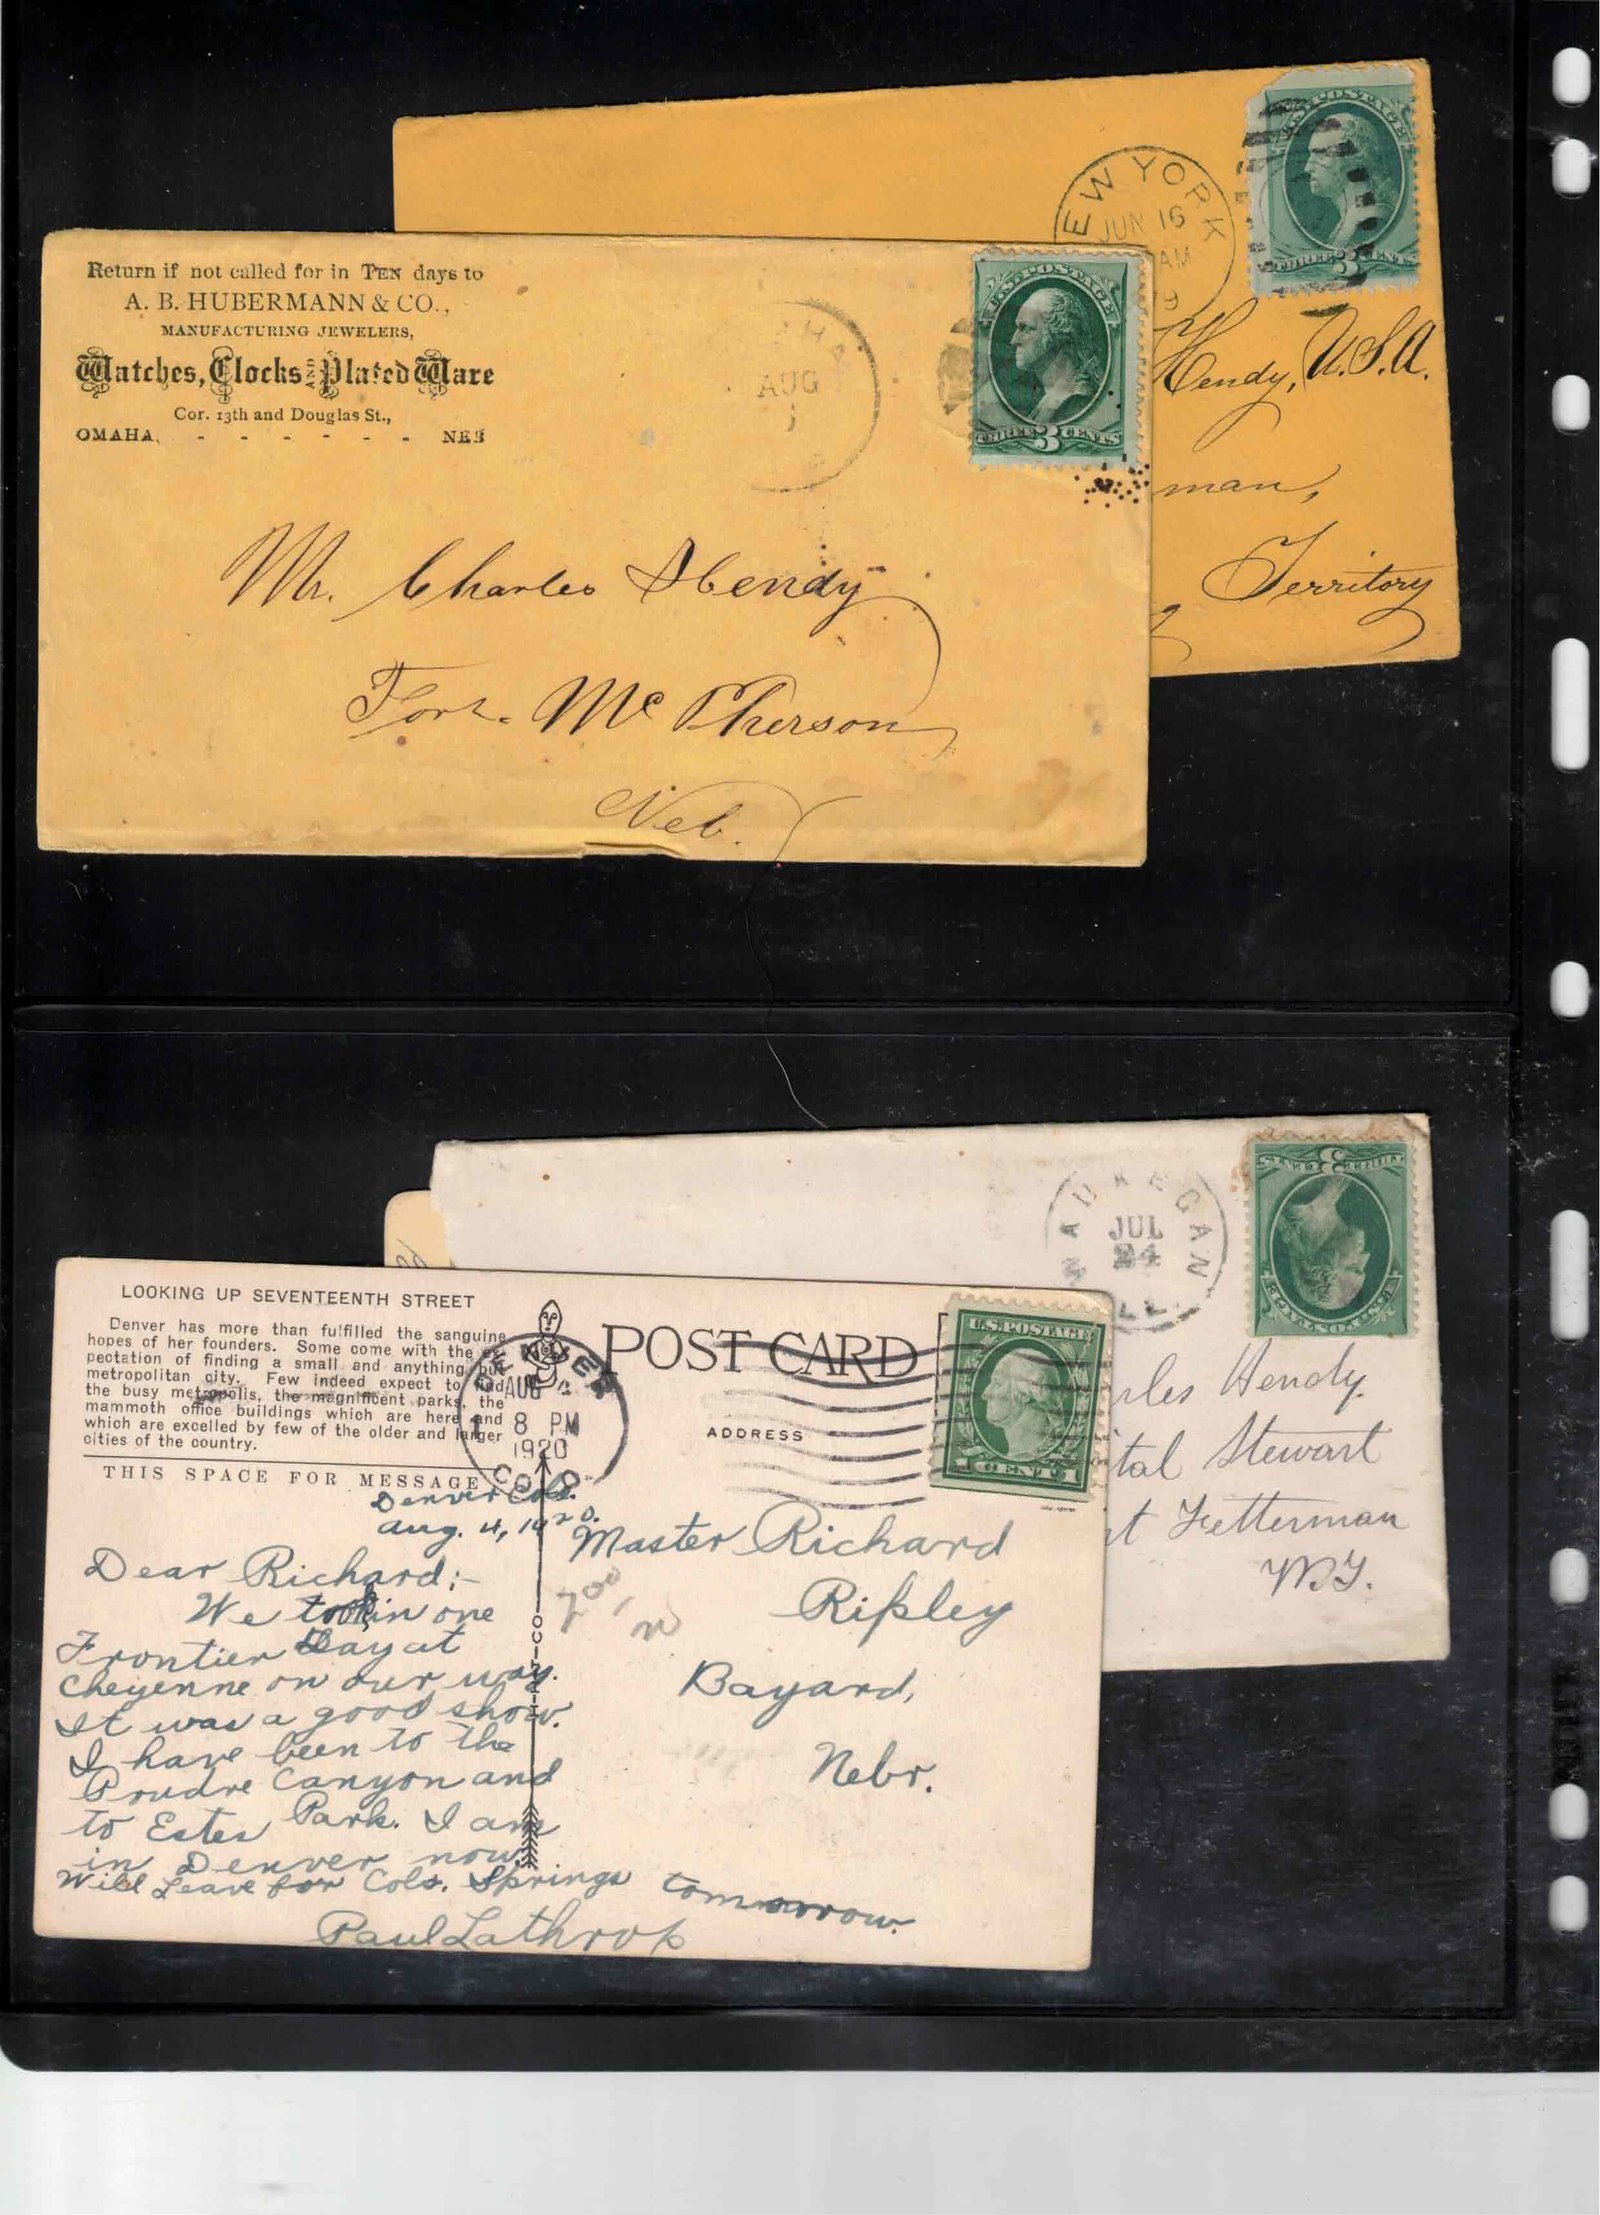 U.S. POSTAGE
THREE 3 CENTS
EW YORK
JUN 16
AM
9
Hendy, U.S.A.
man,
Territory
Return if not called for in TEN days to
A. B. HUBERMANN & CO.,
MANUFACTURING JEWELERS,
Watches, Clocks AND Plated Ware
Cor. 13th and Douglas St.,
OMAHA, - - - - - - NEB
AUG
U.S. POSTAGE
THREE 3 CENTS
Mr. Charles Hendy
Fort McPherson
Neb.
WAUKEGAN
JUL
24
ILL.
U.S. POSTAGE
THREE 3 CENTS
rles Hendy.
tal Stewart
rt Fetterman
W.T.
LOOKING UP SEVENTEENTH STREET
Denver has more than fulfilled the sanguine
hopes of her founders. Some come with the ex-
pectation of finding a small and anything but
metropolitan city. Few indeed expect to find
the busy metropolis, the magnificent parks, the
mammoth office buildings which are here and
which are excelled by few of the older and larger
cities of the country.
THIS SPACE FOR MESSAGE
POST CARD
ADDRESS
DENVER
AUG 4
8 PM
1920
COLO
U.S. POSTAGE
1 CENT 1
Denver Colo.
Aug. 4, 1920.
Dear Richard:-
We took in one
Frontier Day at
Cheyenne on our way.
It was a good show.
I have been to the
Poudre Canyon and
to Estes Park. I am
in Denver now.
Will Leave for Colo. Springs tomorrow.
Paul Lathrop
Master Richard
Ripley
Bayard,
Nebr.